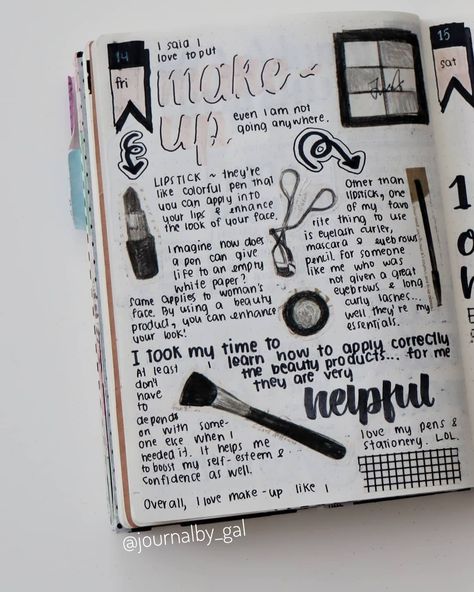 14
fri
I said I
love to put
make-
up.
even I am not
going anywhere.
15
sat
LIPSTICK ~ they're
like colorful pen that
you can apply into
your lips & enhance
the look of your face.
Imagine how does
a pen can give
life to an empty
white paper?
same applies to woman's
face. By using a beauty
product, you can enhance
your look!
Other than
lipstick, one
of my favo
rite thing to use
is eyelash curler,
mascara & eyebrows
pencil. For someone
like me who was
not given a great
eyebrows & long
curly lashes...
well they're my
essentials.
I took my time to
learn how to apply correctly
the beauty products... for me
they are very
helpful
At least I
don't
have
to
depends
on with some-
one else when I
needed it. It helps me
to boost my self-esteem &
confidence as well.
love my pens &
stationery. LOL.
Overall, I love make-up like I
@journalby_gal